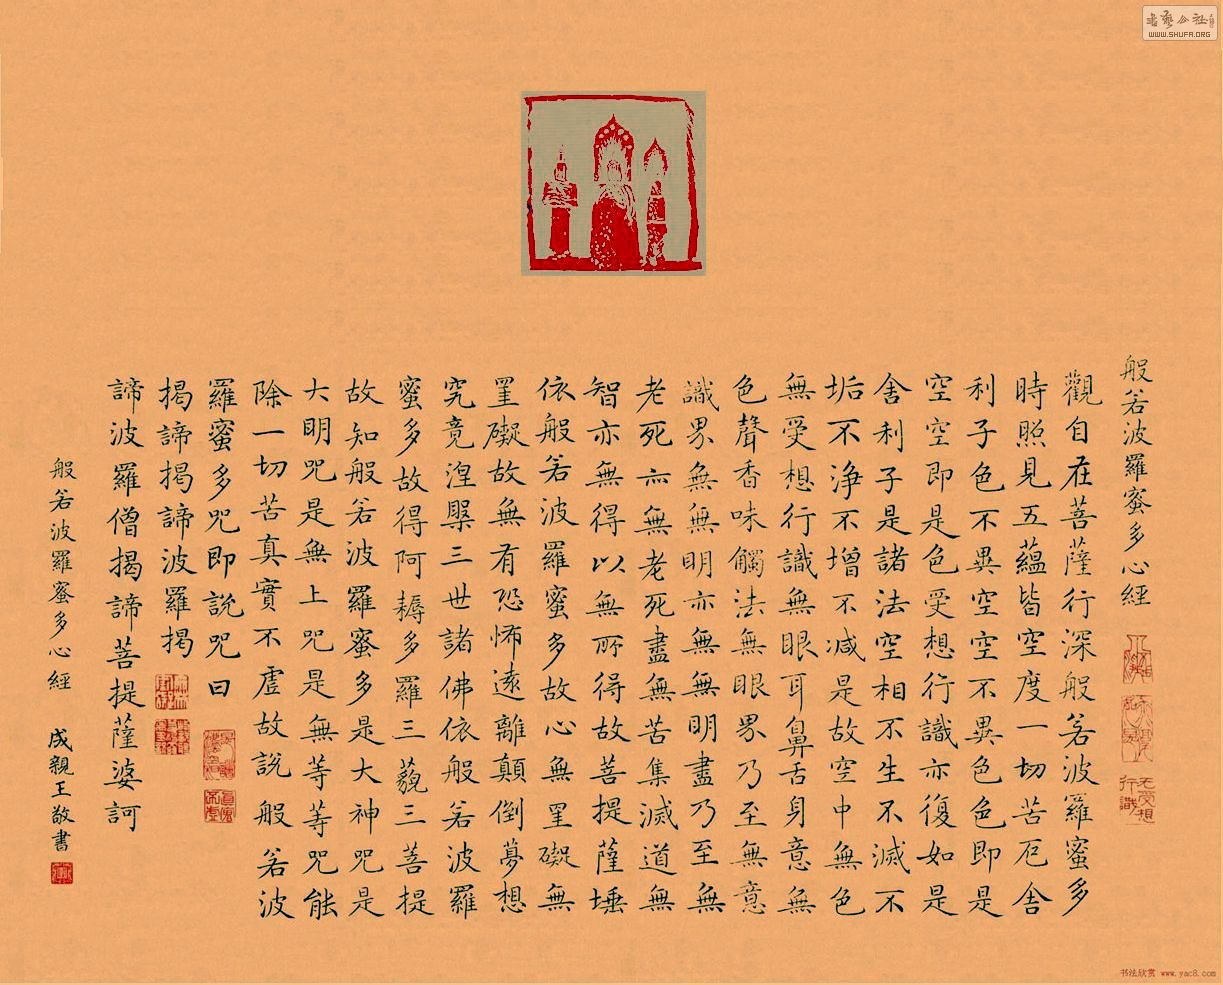 般若波羅蜜多心經
觀自在菩薩行深般若波羅蜜多
時照見五蘊皆空度一切苦厄舍
利子色不異空空不異色色即是
空空即是色受想行識亦復如是
舍利子是諸法空相不生不滅不
垢不淨不增不減是故空中無色
無受想行識無眼耳鼻舌身意無
色聲香味觸法無眼界乃至無意
識界無無明亦無無明盡乃至無
老死亦無老死盡無苦集滅道無
智亦無得以無所得故菩提薩埵
依般若波羅蜜多故心無罣礙無
罣礙故無有恐怖遠離顛倒夢想
究竟涅槃三世諸佛依般若波羅
蜜多故得阿耨多羅三藐三菩提
故知般若波羅蜜多是大神咒是
大明咒是無上咒是無等等咒能
除一切苦真實不虛故說般若波
羅蜜多咒即說咒曰
揭諦揭諦波羅揭
諦波羅僧揭諦菩提薩婆訶
般若波羅蜜多心經 成親王敬書
无受想行識
真實不虛
WWW.SHUFA.ORG
书法欣赏 www.yac8.com